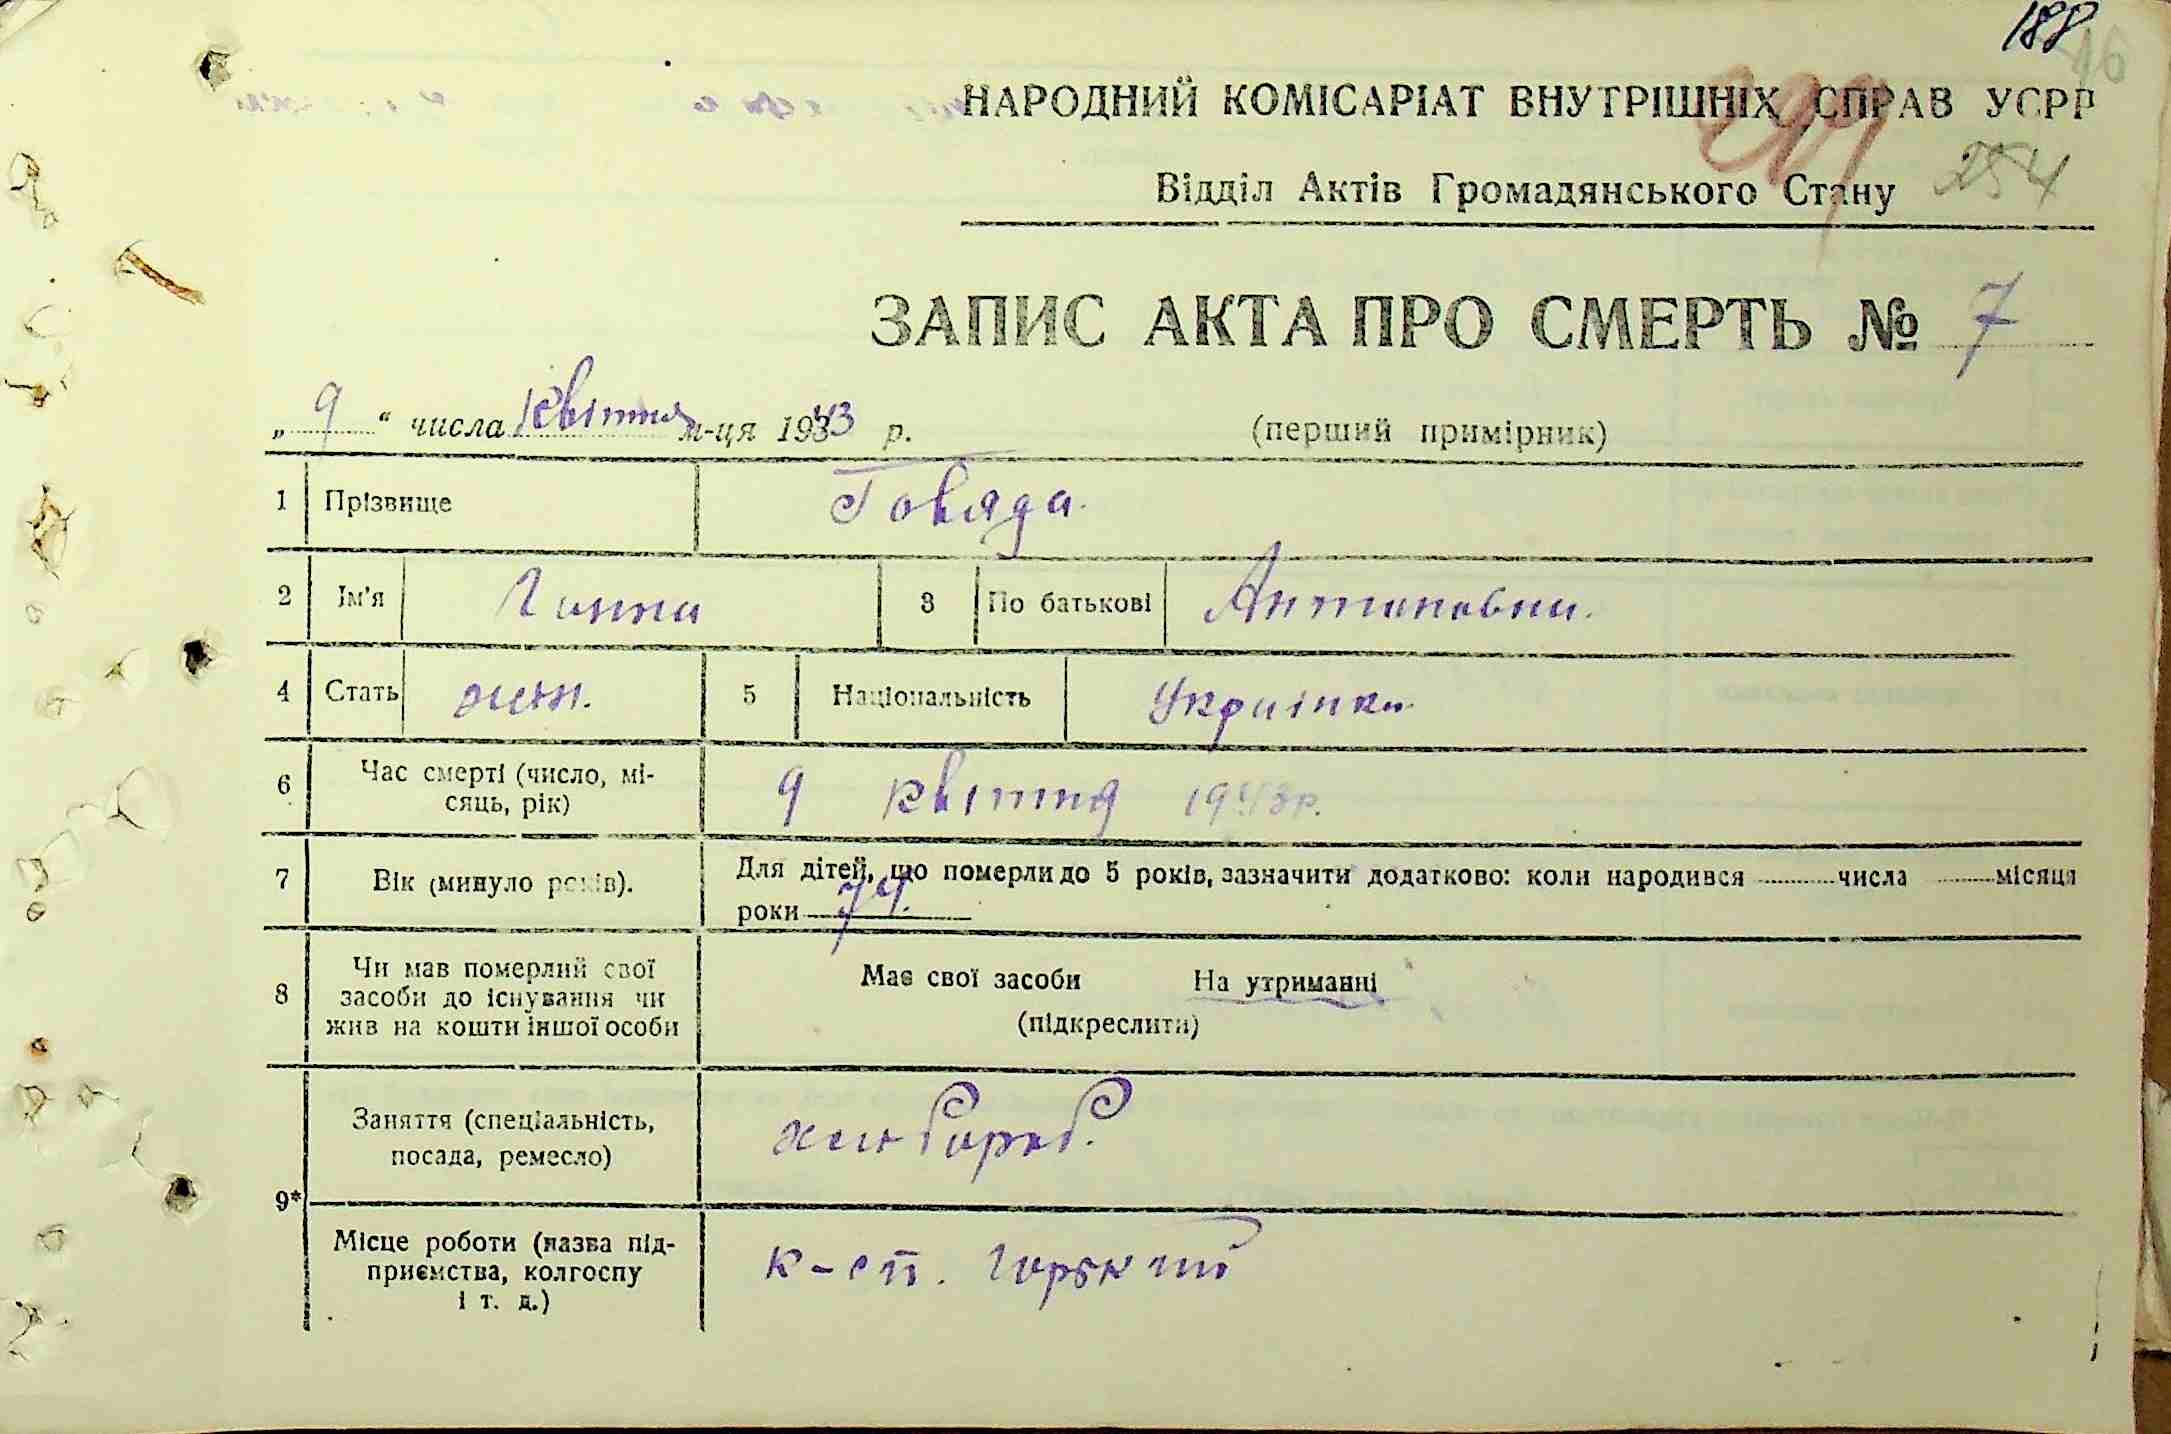 188
16
299
НАРОДНИЙ КОМІСАРІАТ ВНУТРІШНІХ СПРАВ УСРР
Відділ Актів Громадянського Стану 254
ЗАПИС АКТА ПРО СМЕРТЬ № 7
„ 9 “ числа Квітня м-ця 1943 р. (перший примірник)
1 Прізвище Говяда.
2 Ім'я Ганна 3 По батькові Антоновна.
4 Стать жін. 5 Національність Українка.
6 Час смерті (число, мі-
сяць, рік) 9 квітня 1943 р.
7 Вік (минуло років). Для дітей, що померли до 5 років, зазначити додатково: коли народився числа місяця
роки 74.
8 Чи мав померлий свої
засоби до існування чи
жив на кошти іншої особи
Має свої засоби На утриманні
(підкреслити)
9* Заняття (спеціальність,
посада, ремесло)
Місце роботи (назва під-
приємства, колгоспу
і т. д.)
к-сп. Горький